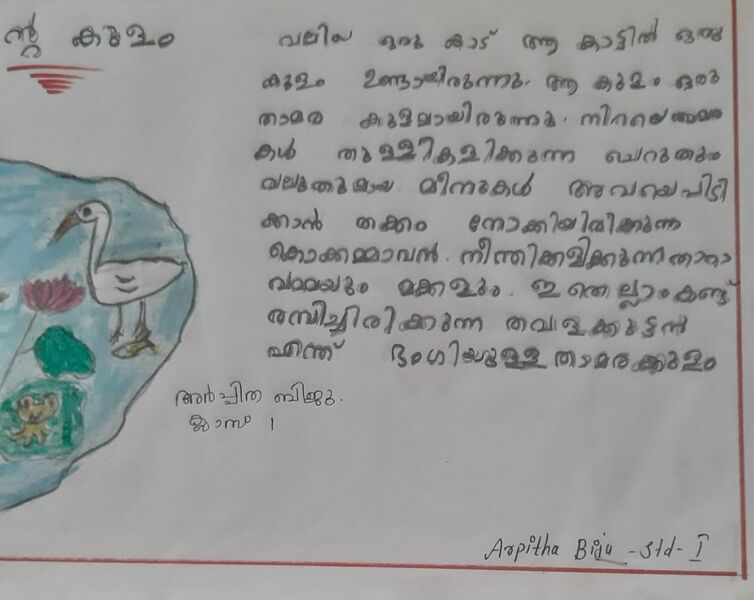 ന്റ കുളം
വലിയ ഒരു കാട് ആ കാട്ടിൽ ഒരു
കുളം ഉണ്ടായിരുന്നു. ആ കുളം ഒരു
താമര കുളമായിരുന്നു. നിറയെ താമര
കൾ തുള്ളികളിക്കുന്ന ചെറുതും
വലുതുമായ മീനുകൾ അവയെപിടി
ക്കാൻ തക്കം നോക്കിയിരിക്കുന്ന
കൊക്കമ്മാവൻ. നീന്തിക്കളിക്കുന്ന താറാ
വമ്മയും മക്കളും. ഇതെല്ലാം കണ്ട്
രസിച്ചിരിക്കുന്ന തവളക്കുട്ടൻ
എന്ത് ഭംഗിയുള്ള താമരക്കുളം
അർപ്പിത ബിജു.
ക്ലാസ് 1
Arpitha Biju - Std - I